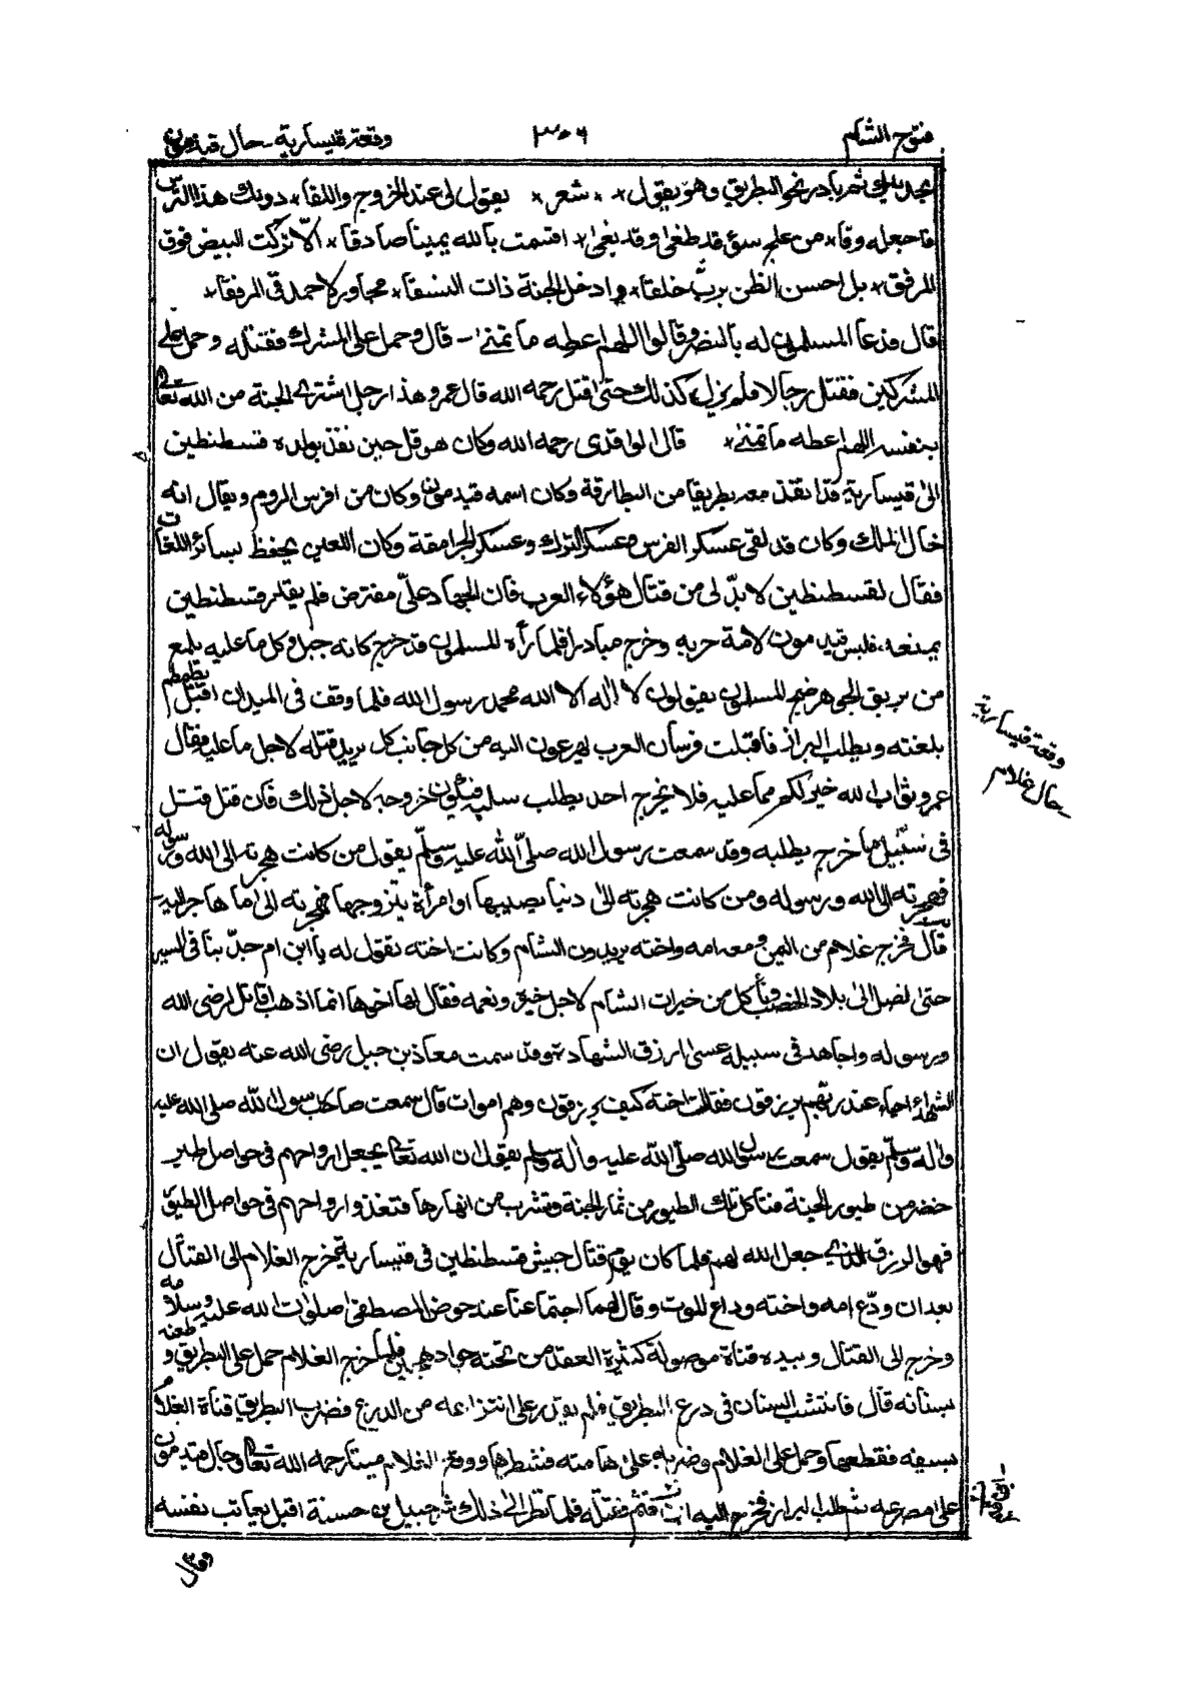 فتوح الشام ٣٠٦ وقعة قيسارية ـ حال قيدمون
ثم بادر نحو البطريق وهو يقول * * شعر * يقول لى عند الخروج واللقا * دونك هذا الترس
فاجعله وقا * من علج سوء قد طغى وقد بغى * اقسمت بالله يمينا صادقا * لاتركت البيض فوق
المرفق * بل احسن الظن برب خلقا * وادخل الجنة ذات النسقا * مجاورا لاحمد فى المرفقا *
قال فدعا المسلمون له بالنصر وقالوا اللهم اعطه ما تمنى ـ قال وحمل على المشرك فقتله وحمل على
المشركين فقتل رجالا فلم يزل كذلك حتى قتل رحمه الله قال عمرو هذا رجل اشترى الجنة من الله تعالى
بنفسه اللهم اعطه ما تمنى * قال الواقدى رحمه الله وكان هرقل حين نفذ بولده قسطنطين
الى قيسارية قد انفذ معه بطريقا من البطارقة وكان اسمه قيدمون وكان من افرس الروم ويقال انه
خال الملك وكان قد لقى عسكر الفرس وعسكر الترك وعسكر الجرامقة وكان اللعين يحفظ بسائر اللغات
فقال لقسطنطين لا بدّ لى من قتال هؤلاء العرب فان الجهاد علىّ مفترض فلم يقدر قسطنطين
يمنعه، فلبس قيدمون لامة حربه وخرج مبادرا فلما رأه المسلمون قد خرج كانه جبل وكل ما عليه يلمع
من بريق الجوهر ضج المسلمون يقولون لا اله الا الله محمد رسول الله فلما وقف فى الميدان اقبل يطمطم
بلغته ويطلب البراز فاقبلت فرسان العرب يهرعون اليه من كل جانب كل يريد قتله لاجل ما عليه فقال
عمرو ثواب الله خير لكم مما عليه فلا يخرج احد يطلب سلبه فيكون خروجه لاجل ذلك فان قتل قتل
فى سبيل ما خرج يطلبه وقد سمعت رسول الله صلى الله عليه وسلم يقول من كانت هجرته الى الله ورسوله
فهجرته الى الله ورسوله ومن كانت هجرته الى دنيا يصيبها او امرأة يتزوجها فهجرته الى ما هاجر اليه
قال فخرج غلام من اليمن ومعه امه واخته يريدون الشام وكانت اخته تقول له يا ابن ام جدّ بنا فى السير
حتى نصل الى بلاد الخصب ونأكل من خيرات الشام لاجل خيره ونعمه فقال لها اخوها انما اذهب اقاتل لرضى الله
ورسوله واجاهد فى سبيله عسى ارزق الشهادة وقد سمعت معاذ بن جبل رضى الله عنه يقول ان
الشهداء احياء عند ربهم يرزقون فقالت اخته كيف يرزقون وهم اموات قال سمعت صاحب رسول الله صلى الله عليه
وأله وسلم يقول سمعت رسول الله صلى الله عليه وأله وسلم يقول ان الله تعالى يجعل ارواحهم فى حواصل طير
خضر من طيور الجنة فتاكل تلك الطيور من ثمار الجنة وتشرب من انهارها فتغذوا ارواحهم فى حواصل الطيور
فهو الرزق الذى جعل الله لهم فلما كان يوم قتال جيش قسطنطين فى قيسارية خرج الغلام الى القتال
بعد ان ودّع امه واخته وداع الموت وقال لهما اجتماعنا عند حوض المصطفى صلوات الله عليه وسلامه
وخرج الى القتال وبيده قناة موصولة كثيرة العقد من تحته جواد هجين فلما خرج الغلام حمل على البطريق وطعنه
بسنانه قال فانتشب السنان فى درع البطريق فلم يقدر على انتزاعه من الدرع فضرب البطريق قناة الغلام
بسيفه فقطعها وحمل على الغلام وضربه على هامته فشطرها ووقع الغلام ميتا رحمه الله تعالى وجال قيدمون
على مصرعه ثم طلب البراز فخرج اليه فقتله فلما نظر الى ذلك شرحبيل بن حسنة اقبل يعاتب نفسه
وقال
وقعة قيسارية
حال غلام